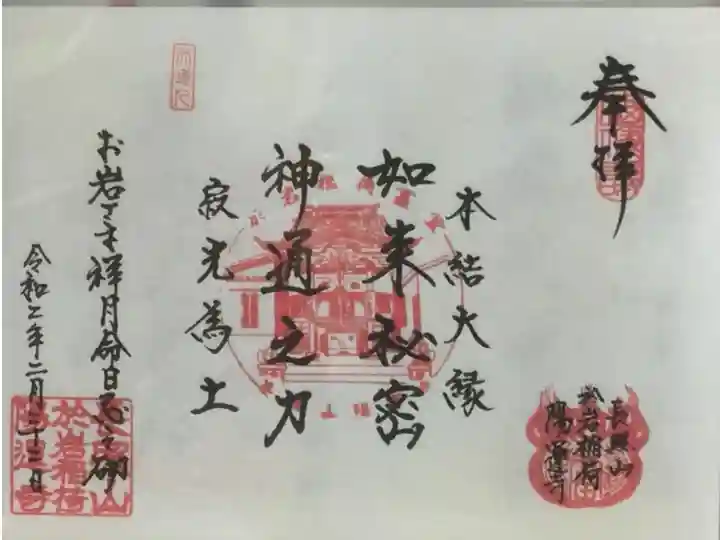 奉拝
長照山
於岩稲荷
陽運寺
本結大縁
如来秘密
神通之力
寂光為土
お岩さま祥月命日
令和二年二月二十二日
於岩稲荷
陽運寺